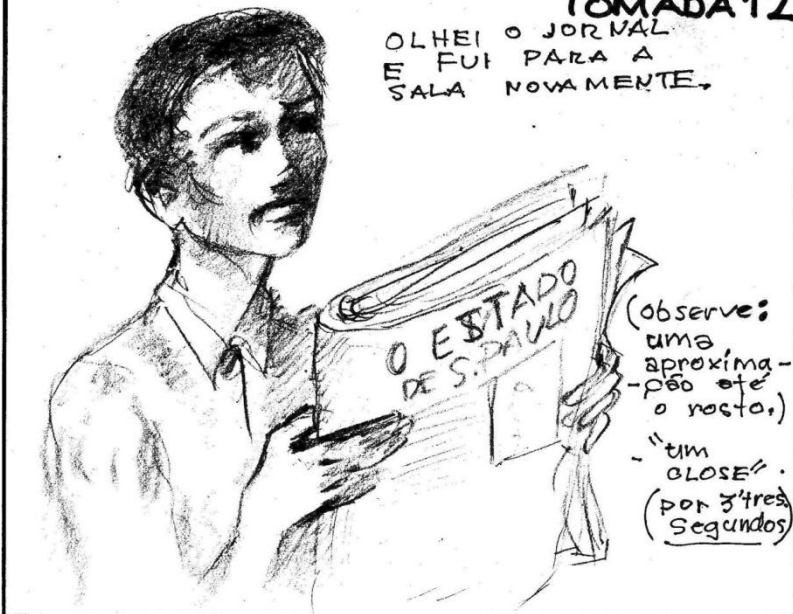 TOMADA 12
OLHEI O JORNAL
E FUI PARA A
SALA NOVAMENTE.
O ESTADO
DE S. PAULO
(observe:
uma
aproxima-
-ção até
o rosto.)
- "um
CLOSE".
(por 3 "tres
Segundos)